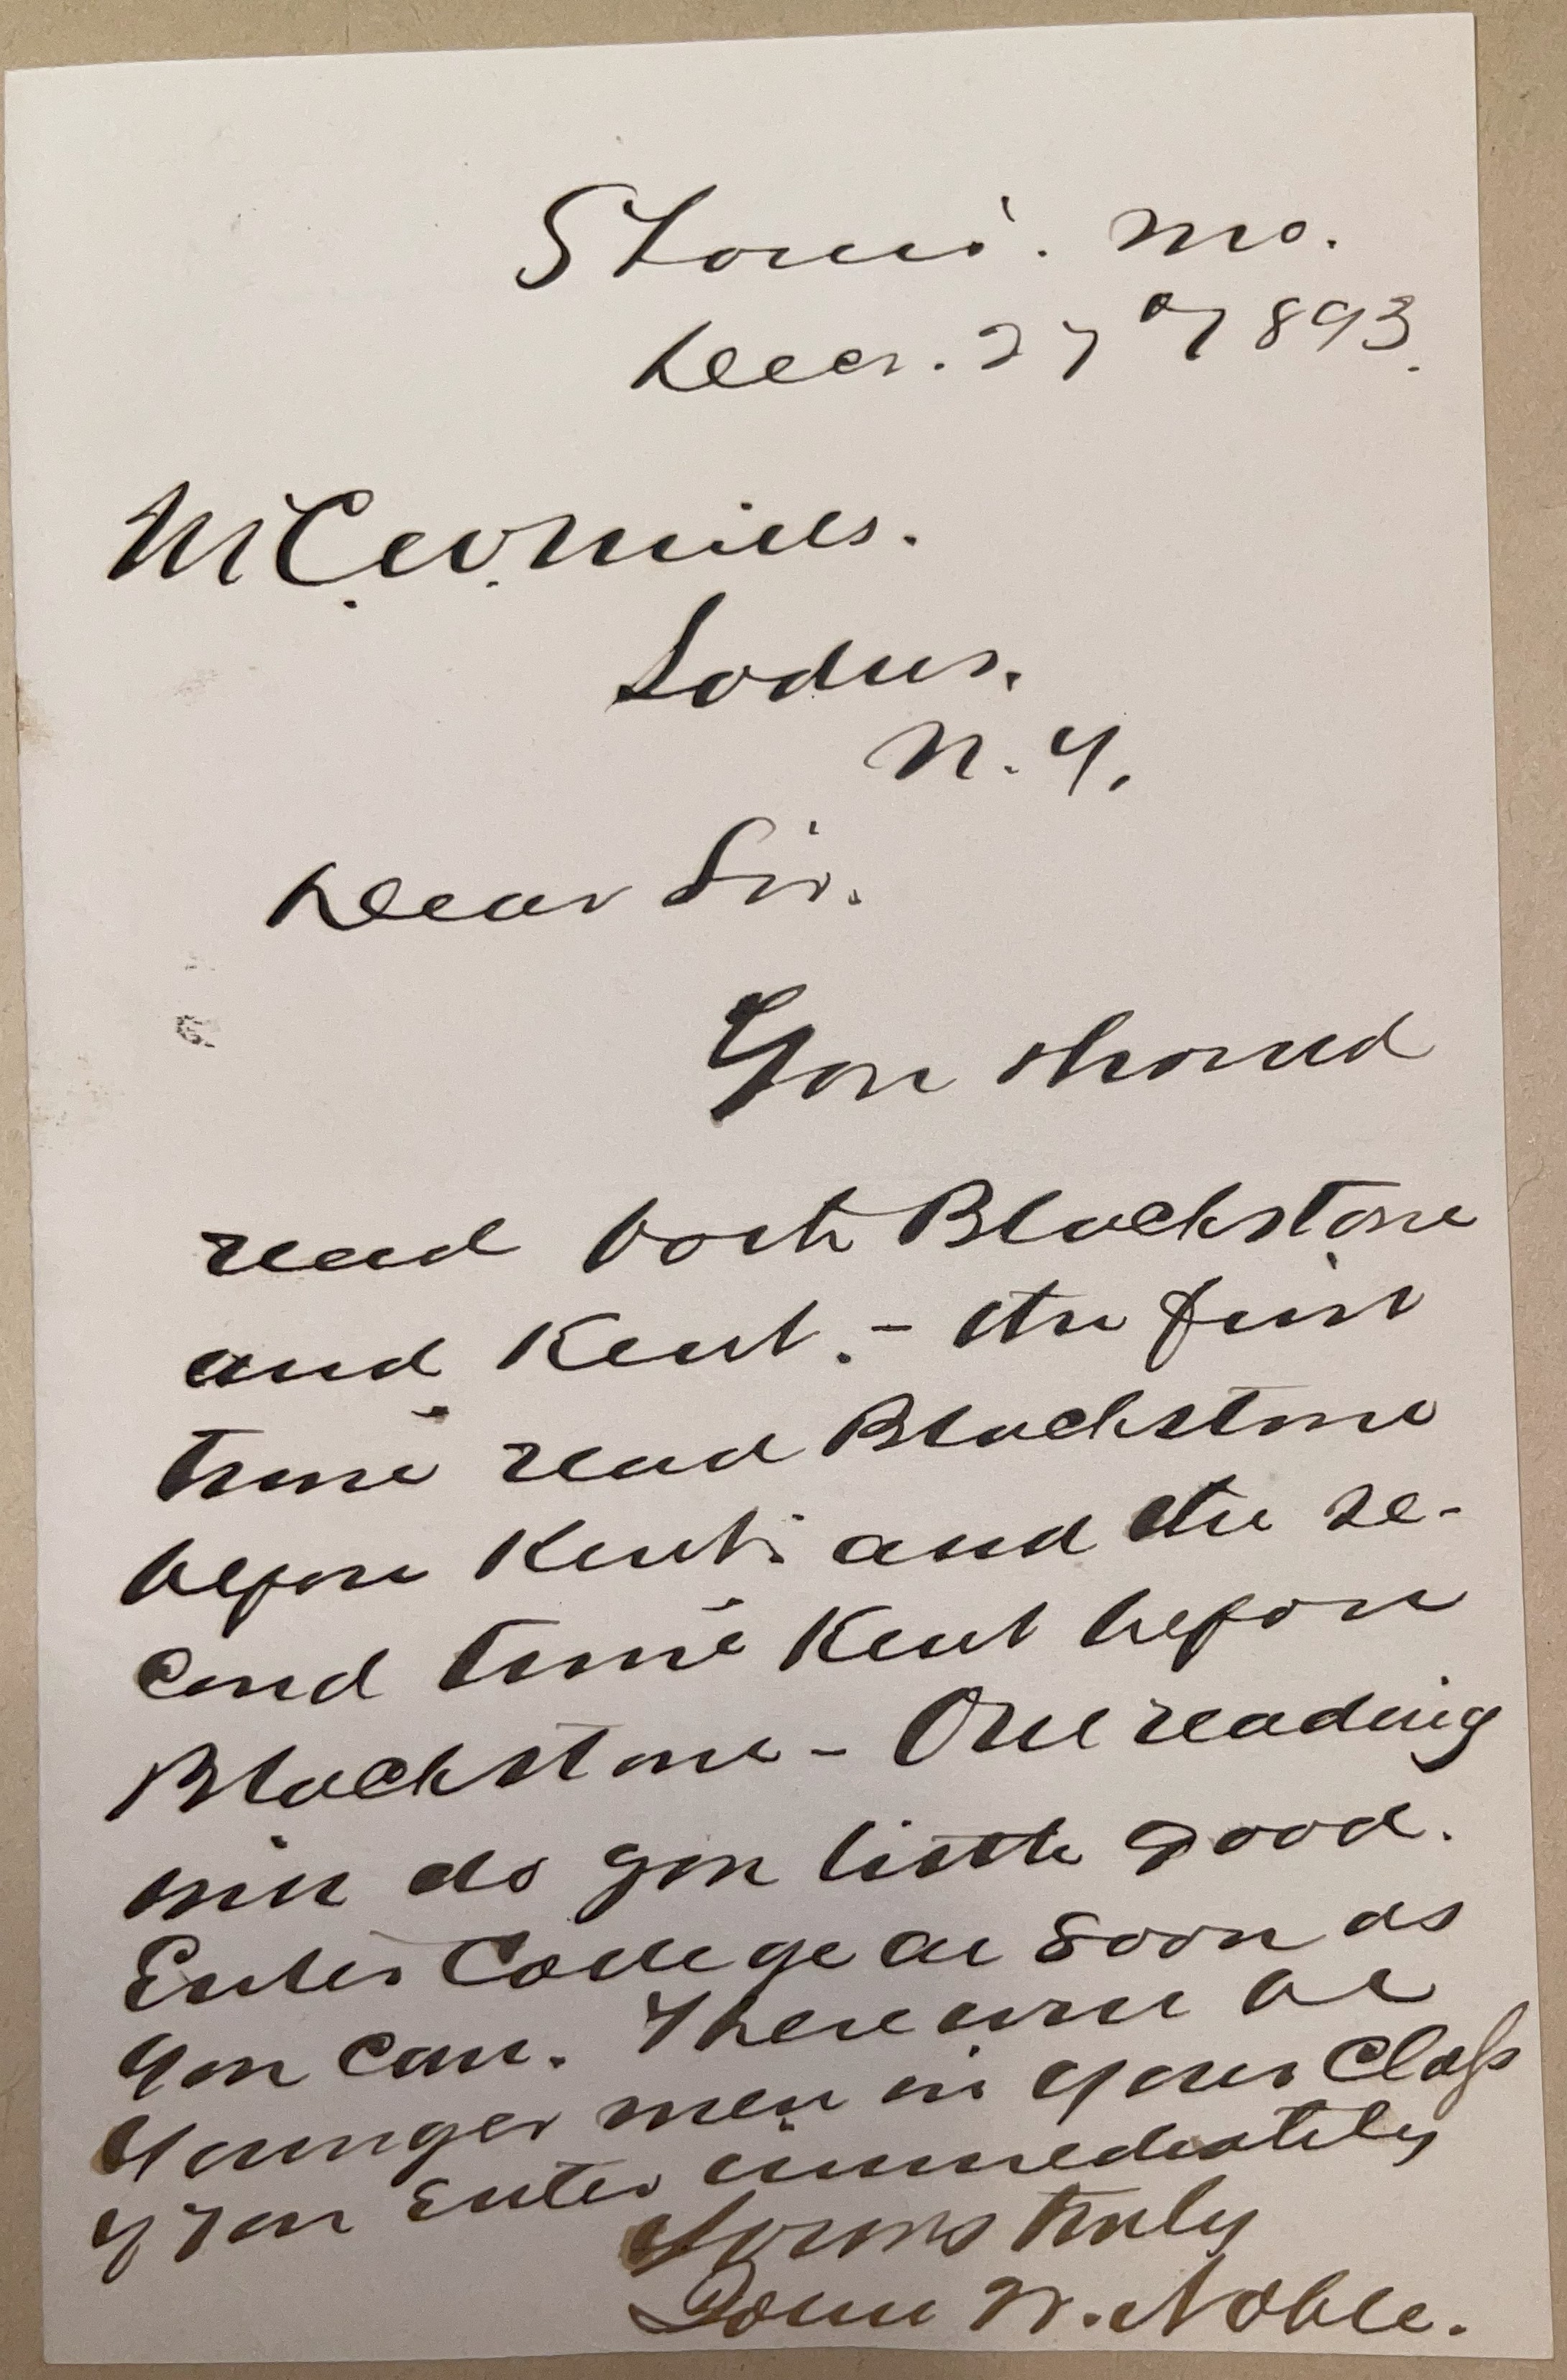 St Louis. Mo.
Decr. 27th 1893.
Mr C. W. Mills.
Sodus.
N. Y.
Dear Sir.
You should
read both Blackstone
and Kent. - the first
time read Blackstone
before Kent: and the se-
cond time Kent before
Blackstone - One reading
will do you little good.
Enter College as soon as
you can. There will be
younger men in your Class
if you enter immediately
Yours truly
John W. Noble.